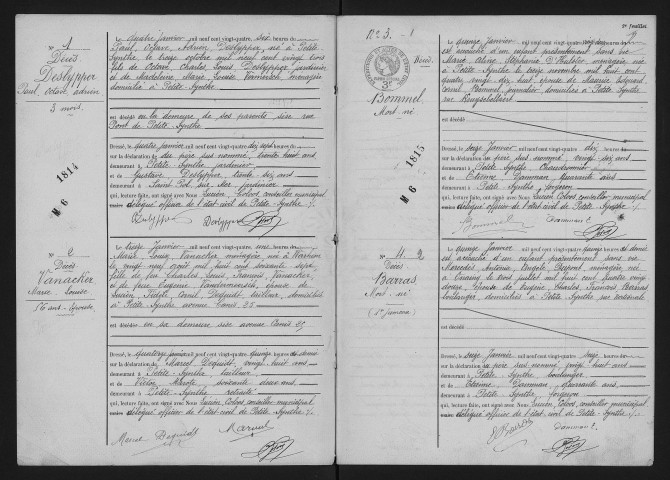 N° 1
Décès
Deslypper
Paul, Octave Adrien
3 mois.
Le quatre janvier mil neuf cent vingt-quatre, six heures du
Paul, Octave, Adrien Deslypper, né à Petite-
Synthe le treize octobre mil neuf cent vingt trois
fils de Octave Charles Louis Deslypper jardinier
et de Madeleine Marie Louise ménagère
domicilié à Petite-Synthe
est décédé en la demeure de ses parents sise rue
Pont de Petite-Synthe
Dressé, le quatre janvier mil neuf cent vingt-quatre dix sept heures
sur la déclaration du père sus nommé, trente huit ans
demeurant à Petite-Synthe jardinier
et de Gustave Deslypper trente-six ans
demeurant à Saint Pol sur Mer jardinier
qui, lecture faite, ont signé avec Nous Lucien conseiller municipal
délégué officier de l'état civil de Petite-Synthe
Deslypper
Deslypper
M 6 1814
N° 2
Décès
Vanacker
Marie Louise
56 ans - Épouse
Le treize janvier mil neuf cent vingt-quatre, une heure du
Marie Louise Vanacker ménagère, née à Warhem
le vingt neuf août mil huit cent soixante sept
fille de feu Charles Louis François Vanacker
et de feue Eugénie épouse de
Lucien Fidèle Cornil Dequidt tailleur domiciliés
à Petite Synthe avenue Carnot 25
est décédée en sa demeure sise avenue Carnot 25
Dressé, le quatorze janvier mil neuf cent vingt-quatre quinze heures et demie
sur la déclaration de Marcel Dequidt, vingt huit ans
demeurant à Petite-Synthe tailleur
et de Victor soixante deux ans
demeurant à Petite-Synthe retraité
qui, lecture faite, ont signé avec Nous Lucien conseiller municipal
délégué officier de l'état civil de Petite-Synthe
Marcel Dequidt
2e feuillet
N° 3. - 1
Décès
Bommel
Mort-né
Le quinze janvier mil neuf cent vingt-quatre
est accouchée d'un enfant présentement sans vie
Marie Aline Stéphanie ménagère née
à Petite-Synthe le treize novembre mil huit cent
quatre vingt dix sept épouse de Maurice
Cornil Bommel journalier domiciliés à Petite Synthe
est décédé
Dressé, le seize janvier mil neuf cent vingt-quatre, dix heures
sur la déclaration du père sus nommé vingt-six ans
demeurant à Petite Synthe
et de Étienne Damman quarante ans
demeurant à Petite Synthe forgeron
qui, lecture faite, ont signé avec Nous Lucien conseiller municipal
délégué officier de l'état civil de Petite-Synthe
Bommel
Damman E.
M 6 1815
N° 4. 2
Décès
Barras
Mort-né
Le quinze janvier mil neuf cent vingt-quatre, quinze heures et demie
est accouchée d'un enfant présentement sans vie
Mercédès Antoinie Angèle ménagère née
à le trois juillet mil huit cent quatre vingt
douze épouse de Eugène Charles François Barras
boulanger domiciliés à Petite Synthe rue nationale
est décédé
Dressé, le seize janvier mil neuf cent vingt-quatre seize heures
sur la déclaration du père sus nommé, vingt huit ans
demeurant à Petite Synthe boulanger
et de Étienne Damman quarante ans
demeurant à Petite Synthe forgeron
qui, lecture faite, ont signé avec Nous Lucien conseiller municipal
délégué officier de l'état civil de Petite-Synthe
Barras
Damman E.